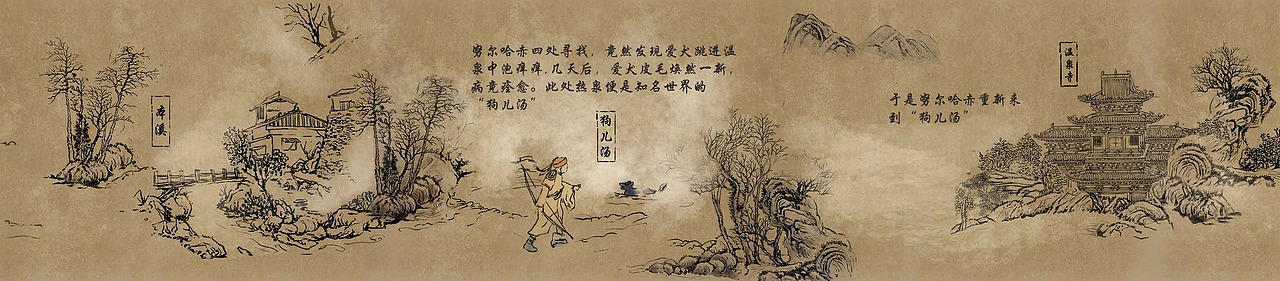 本溪
努尔哈赤四处寻找，竟然发现爱犬跳进温
泉中泡痒痒，几天后，爱犬皮毛焕然一新，
病竟痊愈。此处热泉便是知名世界的
“狗儿汤”
狗儿汤
于是努尔哈赤重新来
到“狗儿汤”
温泉寺